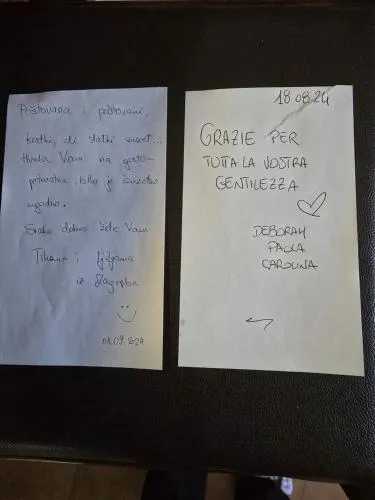 Poštovana i poštovani,
kratki, ali slatki susret...
Hvala Vam na gosto-
primstvu, bilo je izuzetno
ugodno.
Svako dobro žele Vam
Tihana i Ljiljana
iz Zagreba
01.09.2024
18.08.24
GRAZIE PER
TUTTA LA VOSTRA
GENTILEZZA
DEBORAH
PAOLA
CAROLINA